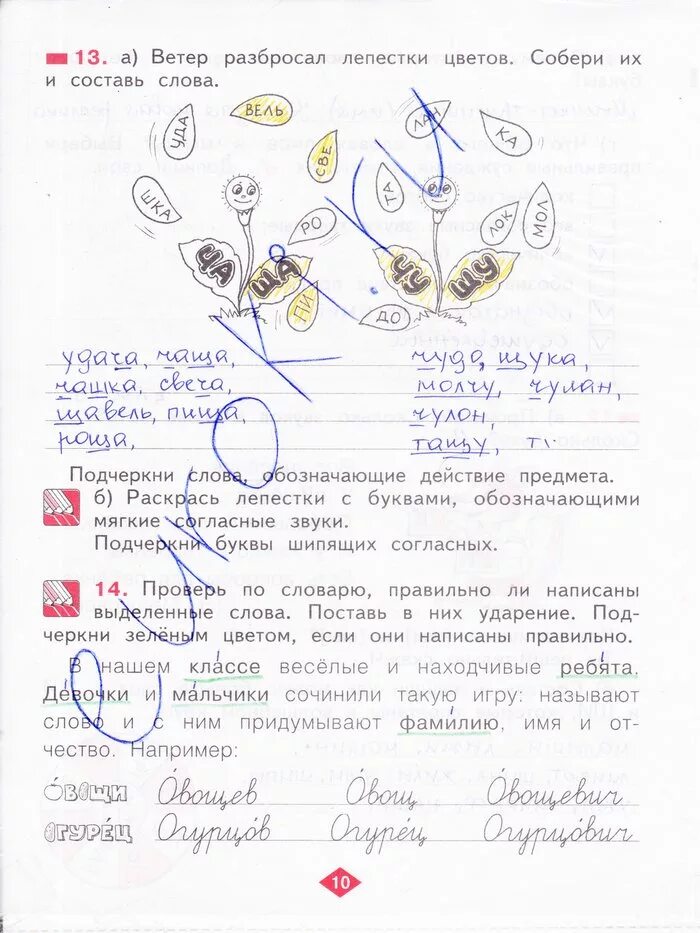 13. а) Ветер разбросал лепестки цветов. Собери их
и составь слова.
УДА
ВЕЛЬ
СВЕ
ШКА
РО
ПИ
ЧА
ЩА
ЛАН
КА
ТА
ЛОК
МОЛ
ДО
ЧУ
ЩУ
удача, чаща,
чашка, свеча,
щавель, пища,
роща,
чудо, щука,
молчу, чулан,
чулон,
тащу, т
Подчеркни слова, обозначающие действие предмета.
б) Раскрась лепестки с буквами, обозначающими
мягкие согласные звуки.
Подчеркни буквы шипящих согласных.
14. Проверь по словарю, правильно ли написаны
выделенные слова. Поставь в них ударение. Под-
черкни зелёным цветом, если они написаны правильно.
В нашем кла́ссе весёлые и находчивые ребя́та.
Де́вочки и ма́льчики сочинили такую игру: называют
слово и с ним придумывают фами́лию, имя и от-
чество. Например:
О́ВОЩИ О́вощев О́вощ О́вощевич
ОГУРЕ́Ц Огурцо́в Огуре́ц Огурцо́вич
10